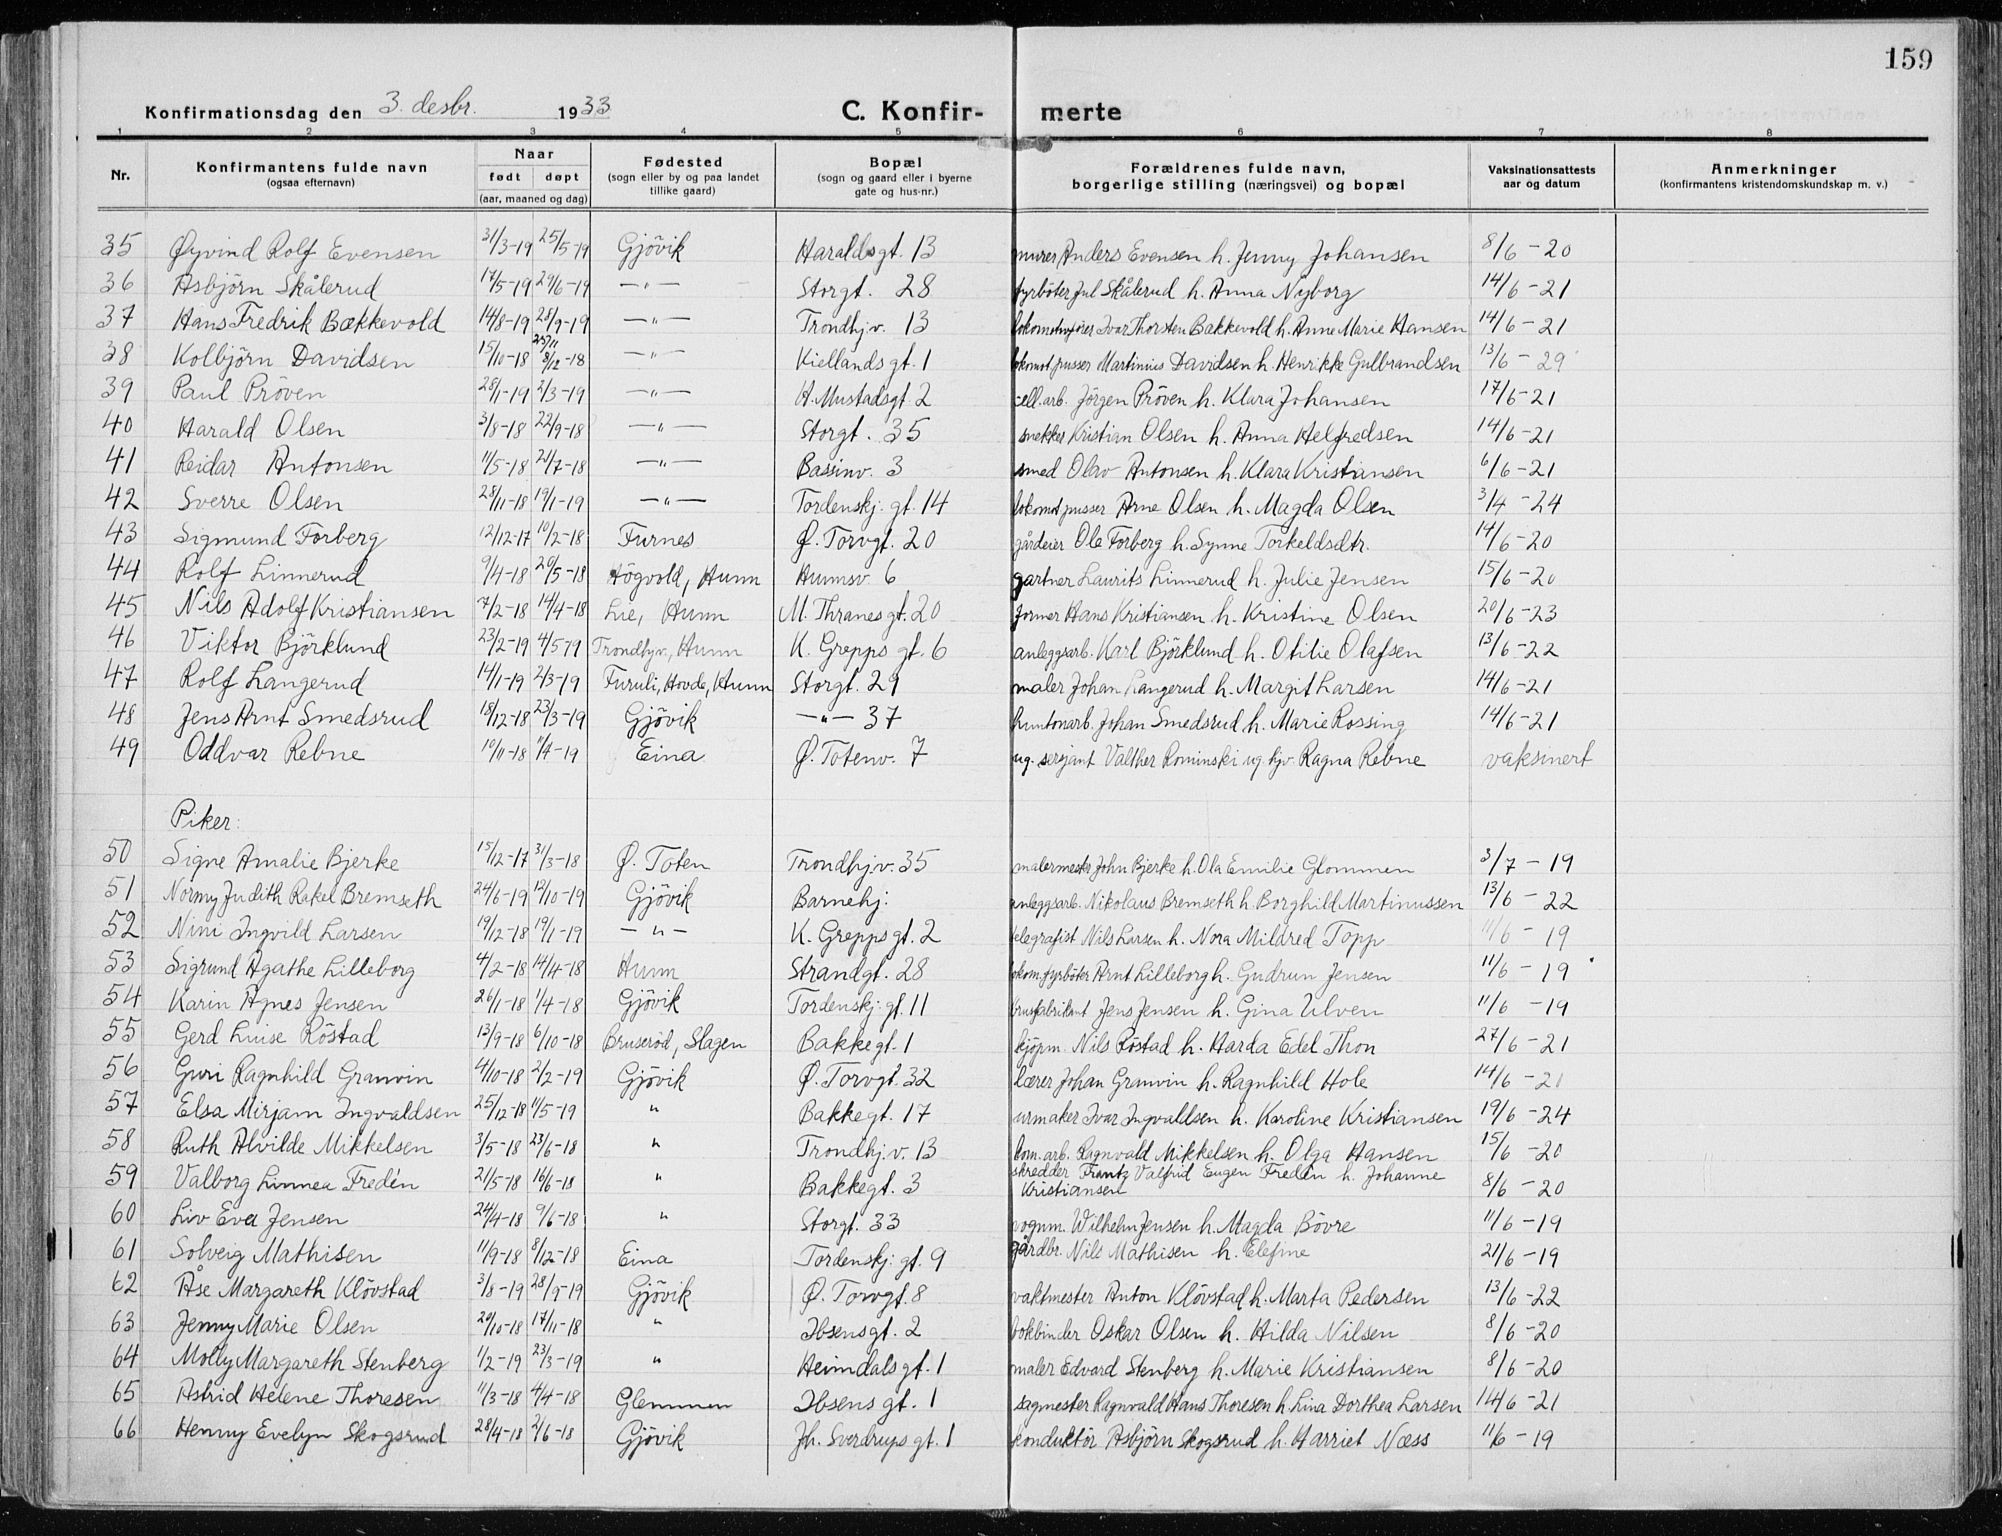 159
Konfirmationsdag den 3. desbr. 1933 C. Konfir- merte
1 2 3 4 5 6 7 8
Nr. Konfirmantens fulde navn (ogsaa efternavn) Naar født døpt (aar, maaned og dag) Fødested (sogn eller by og paa landet tillike gaard) Bopæl (sogn og gaard eller i byerne gate og hus-nr.) Forældrenes fulde navn, borgerlige stilling (næringsvei) og bopæl Vaksinationsattests aar og datum Anmerkninger (konfirmantens kristendomskundskap m. v.)
35 Øyvind Rolf Evensen 31/3-19 25/5-19 Gjövik Haraldsgt. 13 murer Anders Evensen h. Jenny Johansen 8/6-20
36 Asbjörn Skålerud 17/5-19 29/6-19 —"— Storgt. 28 fyrböter Jul Skålerud h. Anna Nyborg 14/6-21
37 Hans Fredrik Bækkevold 14/8-19 28/9-19 —"— Trondhj.v. 13 lokomotivfører Ivar Thorsten Bækkevold h. Anne Marie Hansen 14/6-21
38 Kolbjörn Davidsen 15/10-18 25/11 8/12-18 —"— Kiellands gt. 1 lokomot.pusser Martinius Davidsen h. Henrikke Gulbrandsen 13/6-29
39 Paul Pröven 28/1-19 2/3-19 —"— H. Mustadsgt. 2 cell.arb. Jörgen Pröven h. Klara Johansen 17/6-21
40 Harald Olsen 3/8-18 22/9-18 —"— Storgt. 35 snekker Kristian Olsen h. Anna Helfredsen 14/6-21
41 Reidar Antonsen 11/5-18 21/7-18 —"— Bassinv. 3 smed Olav Antonsen h. Klara Kristiansen 6/6-21
42 Sverre Olsen 28/11-18 19/1-19 —"— Tordenskj. gt. 14 lokomot.pusser Arne Olsen h. Magda Olsen 3/4-24
43 Sigmund Forberg 12/12-17 10/2-18 Furnes Ø. Torvgt. 20 gårdeier Ole Forberg h. Synne Torkeldsdtr. 14/6-20
44 Rolf Linnerud 9/4-18 20/5-18 Högvold, Hunn Hunnsv. 6 gartner Laurits Linnerud h. Julie Jensen 15/6-20
45 Nils Adolf Kristiansen 7/2-18 14/4-18 Lie, Hunn M. Thranes gt. 20 former Hans Kristiansen h. Kristine Olsen 20/6-23
46 Viktor Björklund 23/2-19 4/5-19 Trondhjv., Hunn K. Grepps gt. 6 anleggsarb. Karl Björklund h. Otilie Olafsen 13/6-22
47 Rolf Langerud 14/1-19 2/3-19 Furuli, Hovde, Hunn Storgt. 29 maler Johan Langerud h. Margit Larsen 14/6-21
48 Jens Arnt Smedsrud 18/12-18 23/3-19 Gjövik —"— 37 huntonarb. Johan Smedsrud h. Marie Rossing 14/6-21
49 Oddvar Rebne 10/11-18 11/4-19 Eina Ø. Totenv. 7 ug. sersjant Valther Rominski ug. tjv. Ragna Rebne vaksinert
Piker:
50 Signe Amalie Bjerke 15/12-17 31/3-18 Ø. Toten Trondhj.v. 35 malermester John Bjerke h. Ola Emilie Glommen 3/7-19
51 Normy Judith Rakel Bremseth 24/6-19 12/10-19 Gjövik Barnehj: anleggsarb. Nikolaus Bremseth h. Borghild Martinussen 13/6-22
52 Nini Ingvild Larsen 19/12-18 19/1-19 —"— K. Greppsgt. 2 telegrafist Nils Larsen h. Nora Mildred Topp 11/6-19
53 Sigrund Agathe Lilleborg 4/2-18 14/4-18 Hunn Strandgt. 28 lokom.fyrböter Arnt Lilleborg h. Gudrun Jensen 11/6-19
54 Karin Agnes Jensen 26/1-18 1/4-18 Gjövik Tordenskj: gt. 11 brusfabrikant Jens Jensen h. Gina Ulven 11/6-19
55 Gerd Luise Röstad 13/9-18 6/10-18 Bruseröd, Slagen Bakkegt. 1 kjöpm. Nils Röstad h. Harda Edel Thon 27/6-21
56 Guri Ragnhild Granvin 4/10-18 2/2-19 Gjövik Ø. Torvgt. 32 lærer Johan Granvin h. Ragnhild Hole 14/6-21
57 Elsa Mirjam Ingvaldsen 25/12-18 11/5-19 " Bakkegt. 17 urmaker Ivar Ingvaldsen h. Karoline Kristiansen 19/6-24
58 Ruth Alvilde Mikkelsen 3/5-18 23/6-18 " Trondhj.v. 13 kom.arb. Ragnvald Mikkelsen h. Olga Hansen 15/6-20
59 Valborg Linnea Fredén 21/5-18 16/6-18 " Bakkegt. 3 skredder Frantz Valfrid Eugen Fredén h. Johanne Kristiansen 8/6-20
60 Liv Eva Jensen 24/4-18 9/6-18 " Storgt. 33 vognm. Wilhelm Jensen h. Magda Bövre 11/6-19
61 Solveig Mathisen 11/9-18 8/12-18 Eina Tordenskj: gt. 9 gårdbr. Nils Mathisen h. Elefine 21/6-19
62 Åse Margareth Klövstad 3/8-19 28/9-19 Gjövik Ø. Torvgt. 8 vaktmester Anton Klövstad h. Marta Pedersen 13/6-22
63 Jenny Marie Olsen 20/10-18 17/11-18 " Ibsensgt. 2 bokbinder Oskar Olsen h. Hilda Nilsen 8/6-20
64 Molly Margareth Stenberg 1/2-19 23/3-19 " Heimdalsgt. 1 maler Edvard Stenberg h. Marie Kristiansen 8/6-20
65 Astrid Helene Thoresen 11/3-18 4/4-18 Glemmen Ibsens gt. 1 sagmester Ragnvald Hans Thoresen h. Lina Dorthea Larsen 14/6-21
66 Henny Evelyn Skogsrud 28/4-18 2/6-18 Gjövik Jh. Sverdrups gt. 1 konduktör Asbjörn Skogsrud h. Harriet Næss 11/6-19